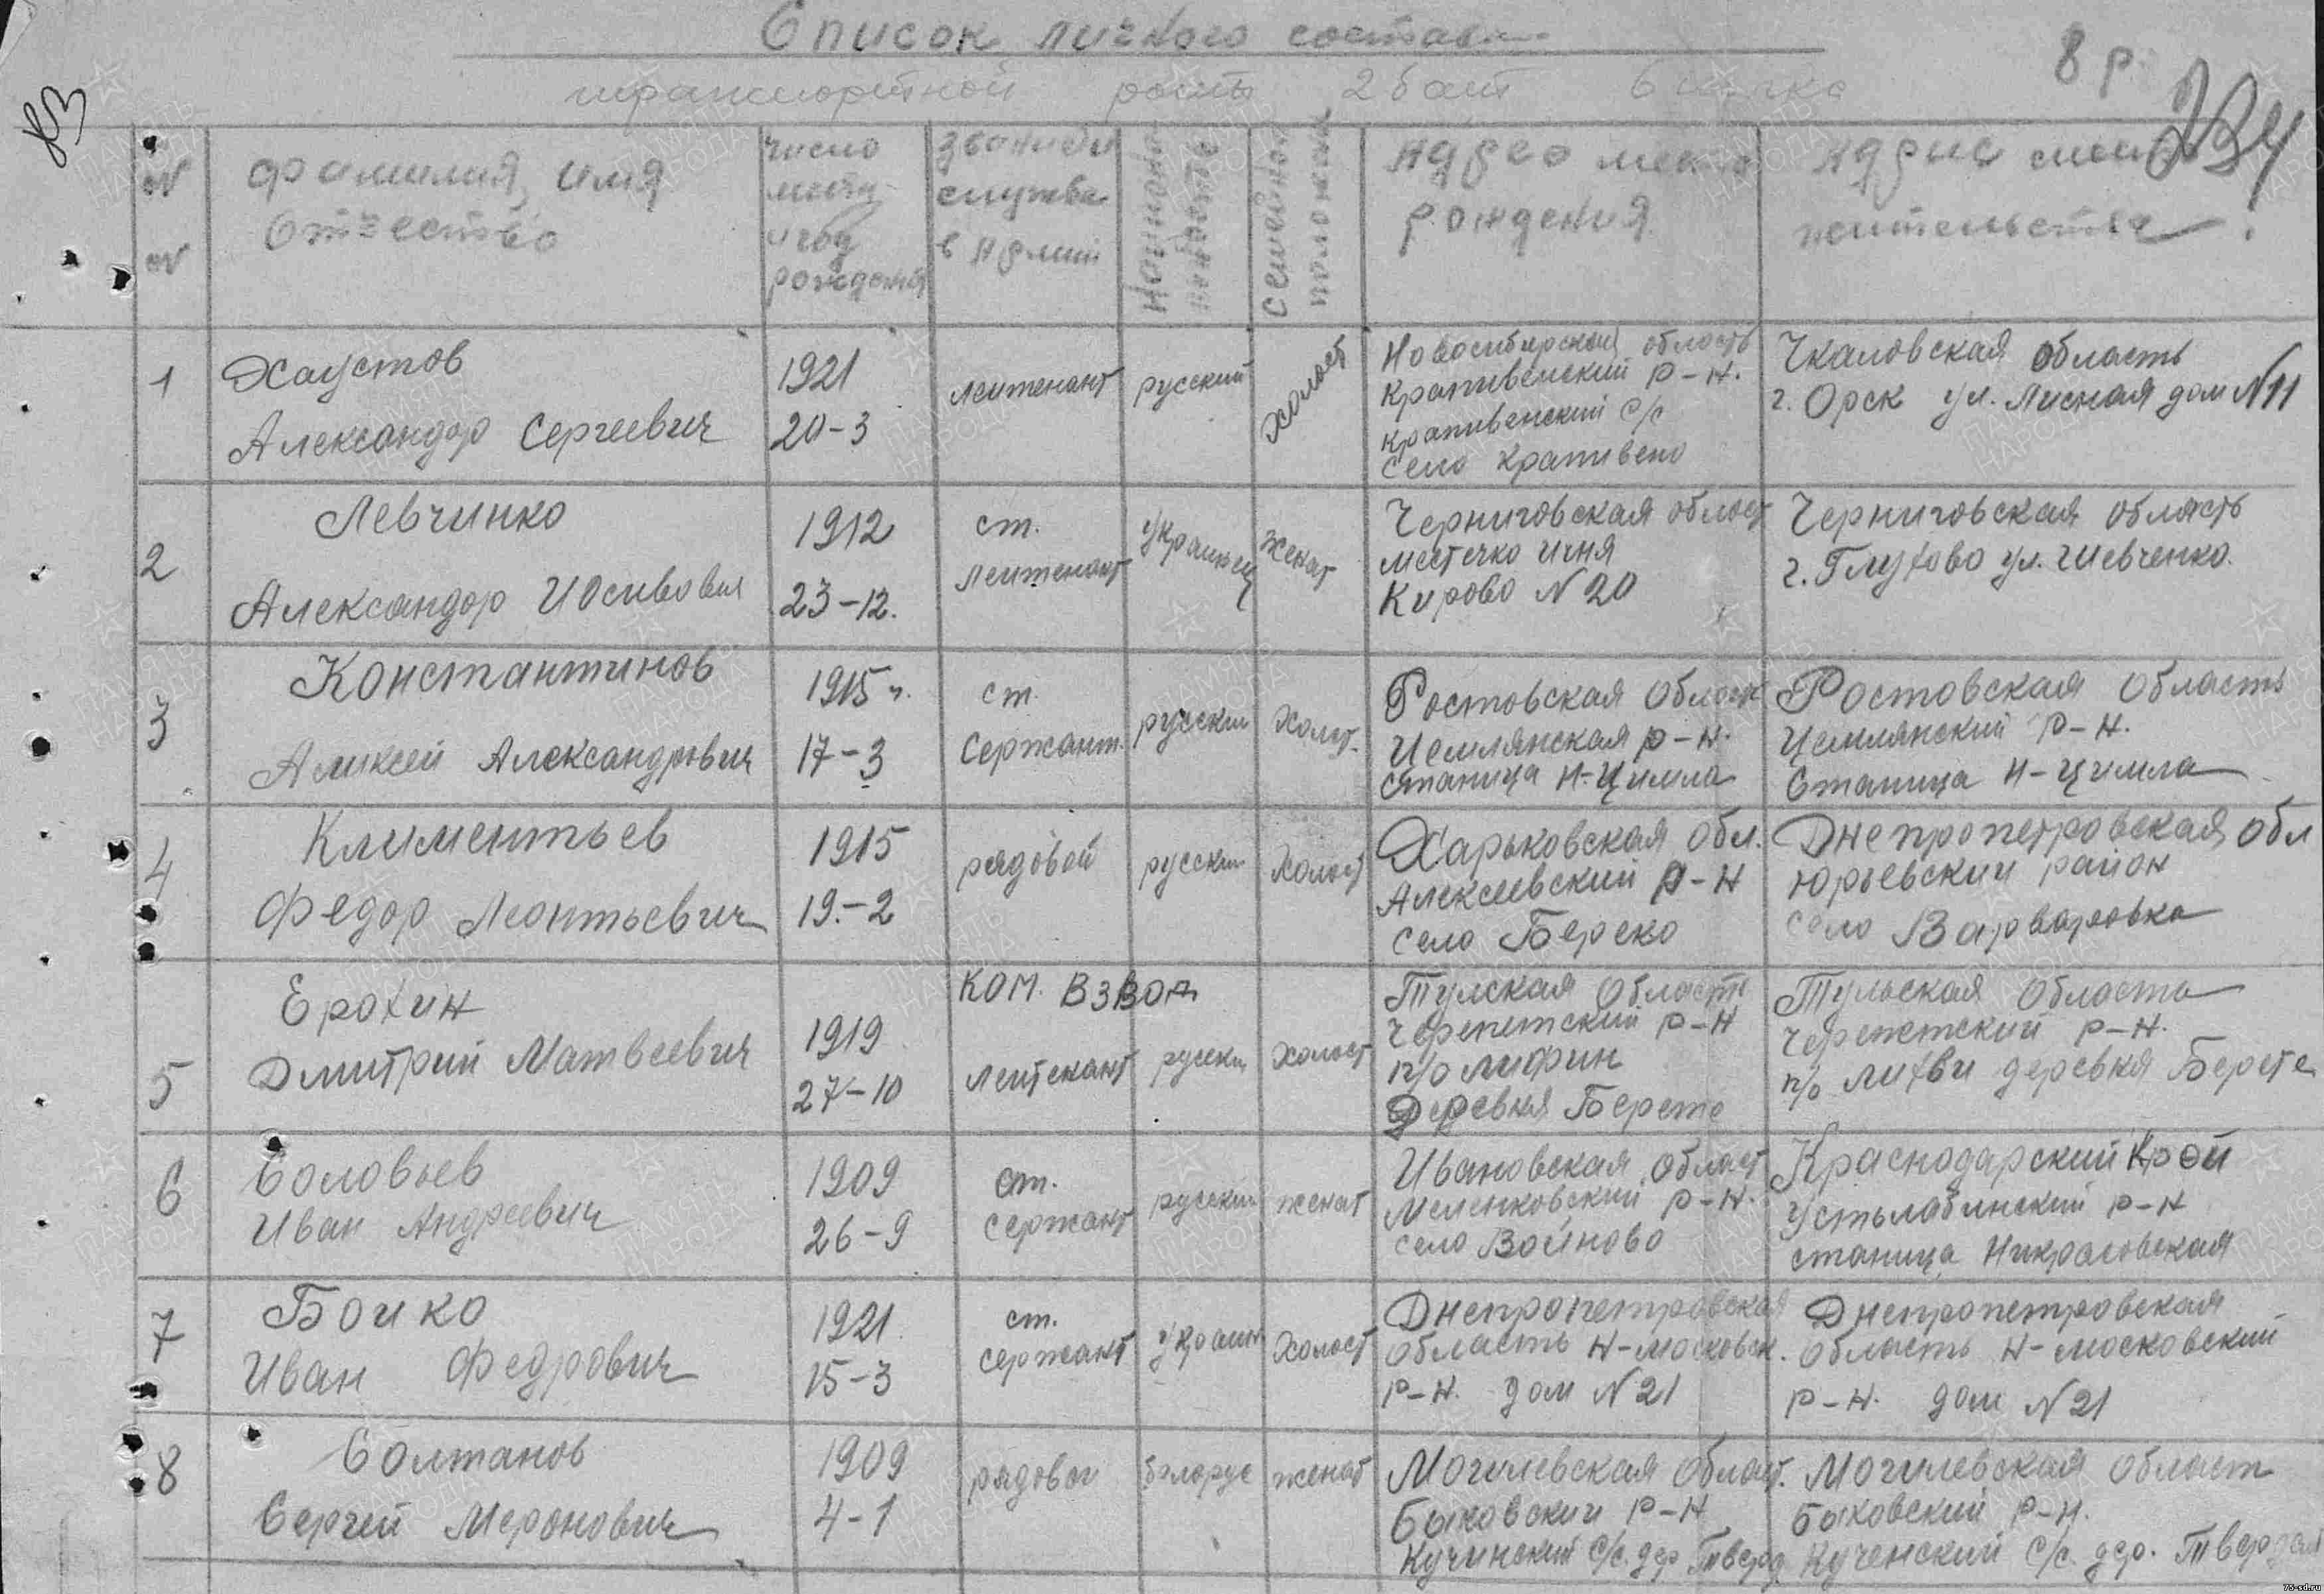 Список личного состава
транспортной роты 2 бат 6 полка
8 р.
№ №
фамилия, имя
отчество
число
месяц
и год
рождения
звание
служба
в Армии
Национальность
Семейное
положение
Адрес место
рождения
Адрес место
жительства
1
Хаустов
Александр Сергеевич
1921
20-3
лейтенант
русский
холост
Новосибирская область
Крапивенский р-н.
Крапивенский с/с
село Крапивено
Чкаловская область
г. Орск ул. Лисная дом N 11
2
Левчинко
Александр Иосивович
1912
23-12.
ст.
лейтенант
Украинец
Женат
Черниговская област
местечко Ичня
Кирово N 20
Черниговская область
г. Глухово ул. Шевченко.
3
Константинов
Аликсей Александрович
1915 г.
17-3
ст.
Сержант.
русский
Холост.
Ростовская област
Цемлянская р-н.
станица Н-Цимла
Ростовская область
Цемлянский р-н.
Станица Н-Цимла
4
Климентьев
Федор Леонтьевич
1915
19.-2
рядовой
русский
Холост
Харьковская обл.
Алексеевский р-н
село Берека
Днепропетровская обл
Юрьевский район
село Варваровка
5
Ерохин
Дмитрий Матвеевич
1919
27-10
ком. взвод
лейтенант
русский
Холост
Тулская область
Черепетский р-н
п/о
деревня
Тульская область
Черепетский р-н.
п/о деревня
6
Соловьев
Иван Андреевич
1909
26-9
ст.
сержант
русский
женат
Ивановская област
Меленковский р-н.
село Войново
Краснодарский Край
Устьлабинский р-н
станица Никрасовская
7
Бойко
Иван Федрович
1921
15-3
ст.
сержант
Украин
Холост
Днепропетровская
область Н-московск.
р-н. дом N 21
Днепропетровская
область Н-московский
р-н. дом N 21
8
Солтанов
Сергей Меронович
1909
4-1
рядовой
белорус
женат
Могилевская област.
Быховский р-н
Кучинский с/с. дер Тверд
Могилевская област
Быховский р-н.
Кученский с/с. дер.
75-sd.ru